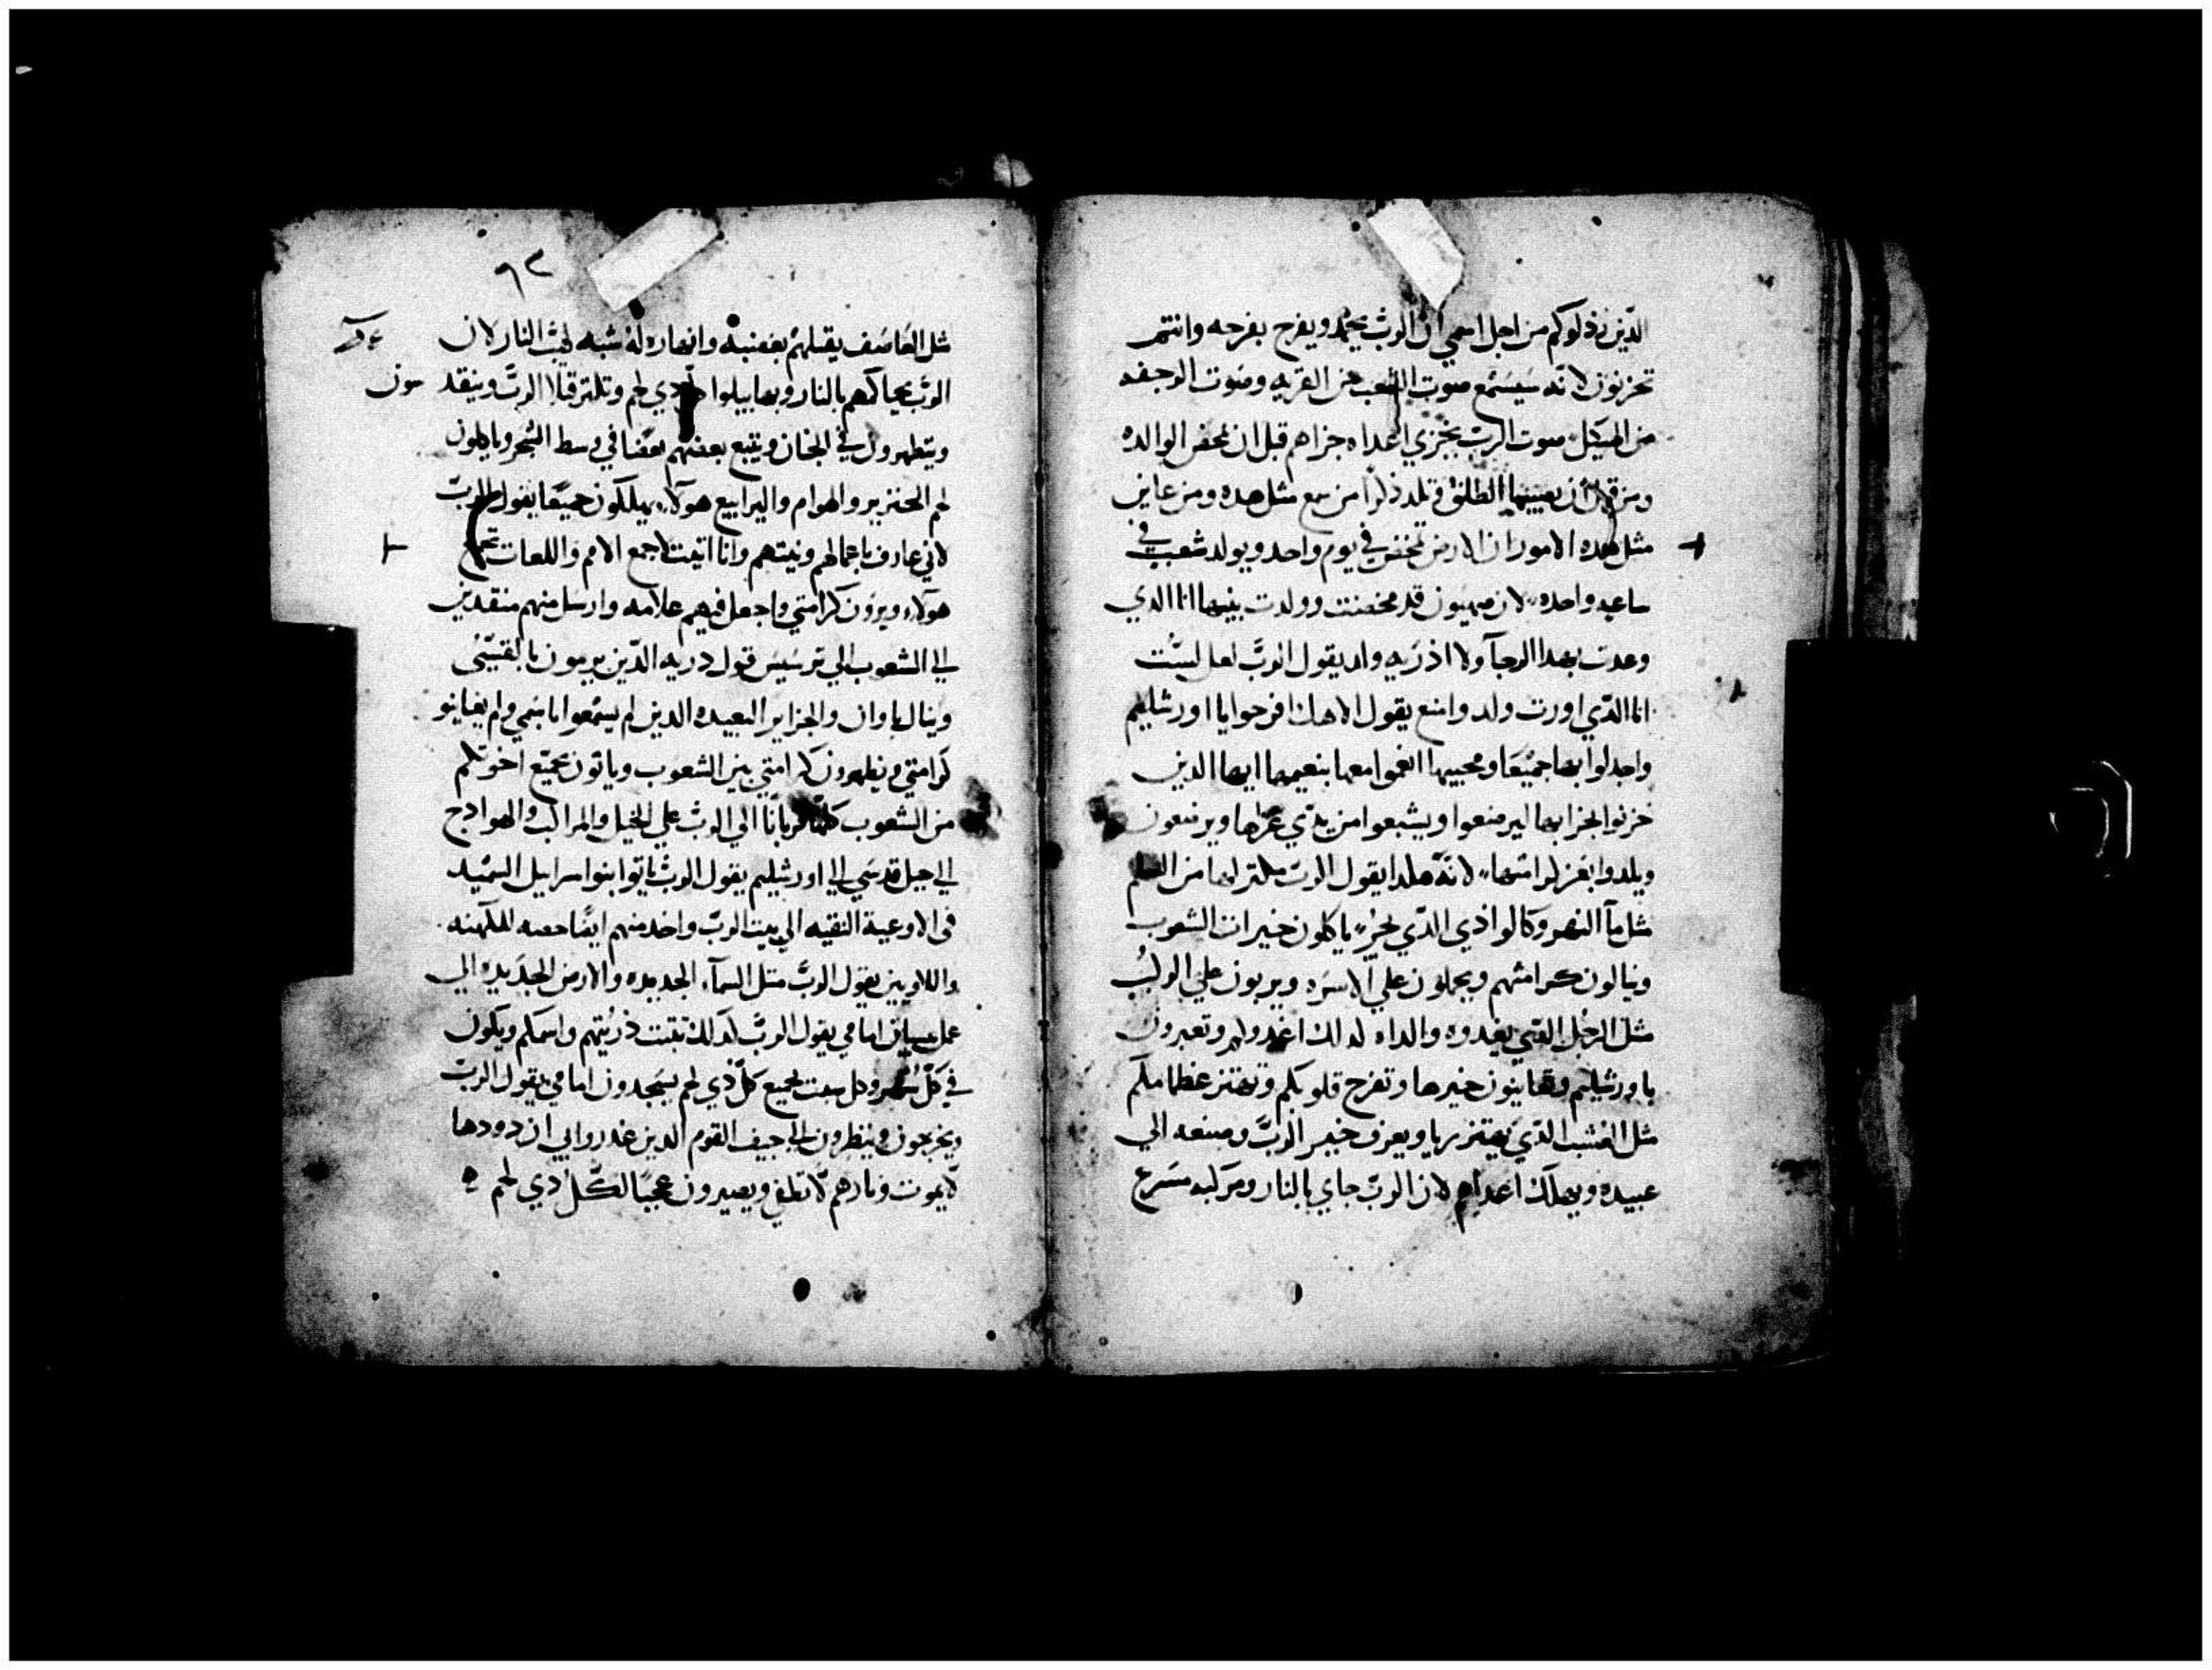 الدين رذلوكم من اجل اسمي ان الرب يمجد ويفرح بفرحه وانتم
تحزنون لانه سيسمع صوت الشعب من القريه وصوت الرجفه
من الهيكل صوت الرب يجزي اعداه جزاهم قبل ان تمخض الوالده
ومن قبل ان يصيبها الطلق وتلد ذكرا من سمع مثل هده ومن عاين
مثل هده الامور ان الارض تمخض في يوم واحد ويولد شعب في
ساعه واحده لان صهيون قد مخضت وولدت بنيها انا الدي
وعدت بهدا الرجآ ولا اذكريه ولد يقول الرب لعل لست
انا الدي اورت ولد وامنع يقول الاهك افرحوا يا اورشليم
واجدلوا بها جميعا ومحبيها انعموا معها بنعيمها ايها الدين
حزنوا لحزنها ليرضعوا ويشبعوا من تدي عزاها ويرضعون
ويلدوا بعز كرامتها لانه هكدا يقول الرب
مثل مآ النهر وكالوادي الدي يجر ياكلون خيرات الشعوب
وينالون كرامتهم ويحملون علي الاسره ويربون علي الركب
مثل الرجل الدي يعدوه والداه لدلك اعدوكم وتعبرون
باورشليم وتعاينون خيرها وتفرح قلوبكم وتهتز عظامكم
مثل العشب الدي يهتز ريا ويعرف خبر الرب وصنعه الي
عبيده ويهلك اعداهم لان الرب جاي بالنار ومركبه مسرع
٩٢
مثل العاصف يقبلهم بغضبه وانتهاره له شبه لهيب النار لان
الرب يحاكمهم بالنار وبها يبلوا دي لحم وتكتر قتلا الرب ويتقدسون
ويتطهرون في الجنان ويتبع بعضهم بعضا في وسط الشجر وياكلون
لحم الخنزير والهوام واليرابيع هولاء يهلكون جميعا يقول الرب
لاني عارف باعمالهم ونيتهم وانا اتيت لاجمع الامم واللغات تجمع
هولاء ويرون كرامتي واجعل فيهم علامه وارسل منهم منقدين
الي الشعوب الي ترسيس فول دريه الدين يرمون بالقسي
وينال ياوان والجزاير البعيده الدين لم يسمعوا باسمي ولم يعاينو
كرامتي ويظهرون كرامتي بين الشعوب وياتون بجميع اخوتكم
من الشعوب كلها قربانا الي الرب علي الخيل والمراكب والهوادج
الي جبل قدسي الي اورشليم يقول الرب ياتوا بنوا اسراييل السميد
في الاوعية النقيه الي بيت الرب واخد منهم ايضا للكهنه
واللاويين يقول الرب متل السمآء الجديده والارض الجديده الي
عمل امامي يقول الرب كدلك تتبت ذريتهم واسمكم ويكون
في كل شهر وكل سبت يجيع كل دي لحم يسجدون امامي يقول الرب
ويخرجون وينظرون الي جيف القوم الدين غدروا بي ان دودها
لا يموت ونارهم لا تطفي ويصيرون عجبا لكل دي لحم